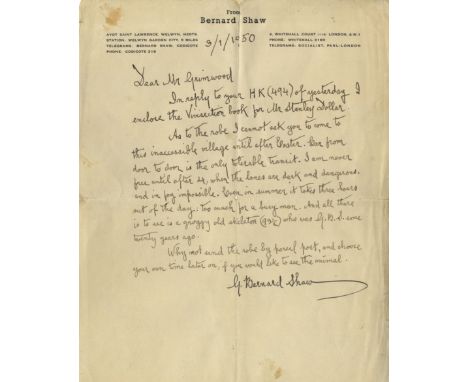 From
Bernard Shaw
AYOT SAINT LAWRENCE, WELWYN, HERTS.
STATION: WELWYN GARDEN CITY, 5 MILES
TELEGRAMS: BERNARD SHAW, CODICOTE
PHONE: CODICOTE 218
4, WHITEHALL COURT LONDON, S.W.1
PHONE: WHITEHALL 3160
TELEGRAMS: SOCIALIST, PARL-LONDON
3/1/1950
Dear Mr Grimwood
In reply to your HK (494) of yesterday I
enclose the Vivisection book for Mr Stanley Dollar.
As to the robe I cannot ask you to come to
this inaccessible village until after Easter. Car from
door to door is the only tolerable transit. I am never
free until after 4, when the lanes are dark and dangerous.
and in fog impossible. Even in summer it takes three hours
out of the day: too much for a busy man. And all there
is to see is a groggy old skeleton (93½) who was G.B.S. some
twenty years ago.
Why not send the robe by parcel post, and choose
your own time later on, if you would like to see the animal.
G. Bernard Shaw